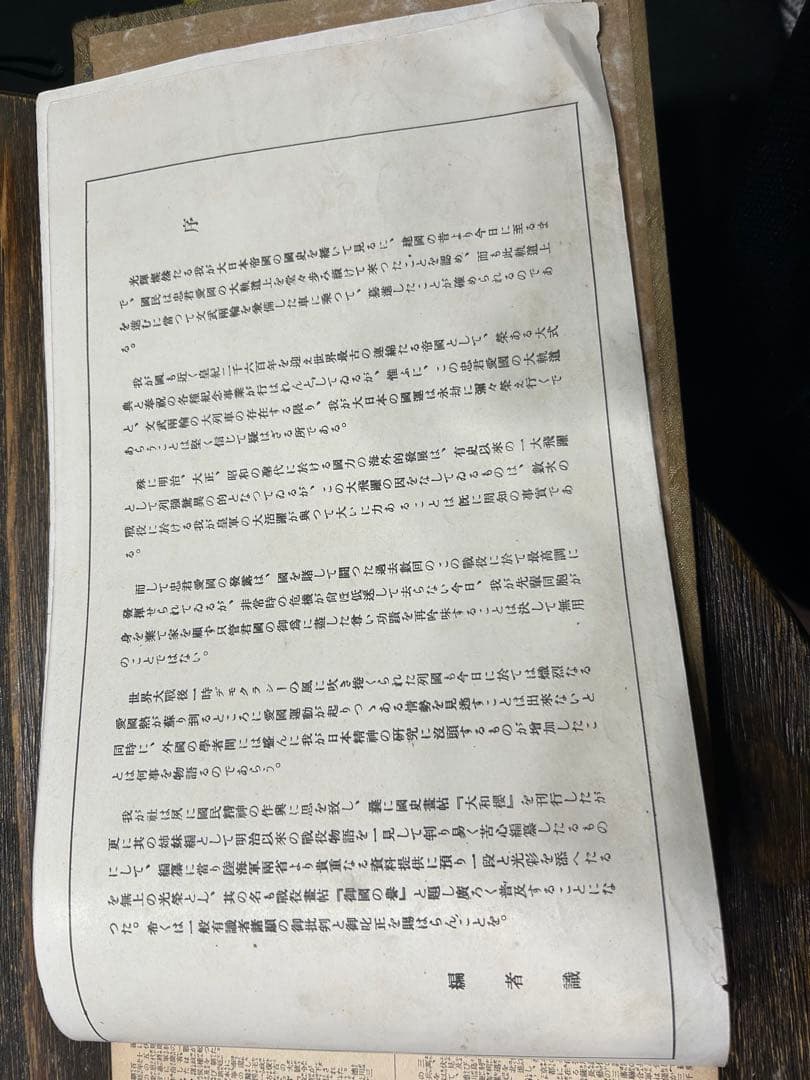 序
光輝燦然たる我が大日本帝國の國史を繙いて見るに、建國の昔より今日に至るま
で、國民は忠君愛國の大軌道上を堂々歩み續けて來つたことを認め、而も此軌道上
を進むに當つて文武兩輪を兼備した車に乗つて、驀進したことが確められるのであ
る。
我が國も近く皇紀二千六百年を迎え世界最古の連綿たる帝國として、榮ある大式
典と奉祝の各種紀念事業が行はれんとしてゐるが、惟ふに、この忠君愛國の大軌道
と、文武兩輪の大列車の存在する限り、我が大日本の國運は永劫に彌々榮え行くで
あらうことは堅く信じて疑はざる所である。
殊に明治、大正、昭和の聖代に於ける國力の海外的發展は、有史以來の一大飛躍
として列强驚異の的となつてゐるが、この大飛躍の因をなしてゐるものは、數次の
戰役に於ける我が皇軍の大活躍が與つて大いに力あることは旣に周知の事實であ
る。
而して忠君愛國の發露は、國を賭して鬪つた過去數回のこの戰役に於て最高調に
發揮せられてゐるが、非常時の危機が尙ほ低迷して去らない今日、我が先輩同胞が
身を棄て家を顧ず只管君國の御爲に盡した尊い功蹟を再吟味することは決して無用
のことではない。
世界大戰後一時デモクラシーの風に吹き捲くられた列國も今日に於ては熾烈なる
愛國熱が蘇り到るところに愛國運動が起りつゝある情勢を見逃すことは出來ないと
同時に、外國の學者間には盛んに我が日本精神の硏究に沒頭するものが增加したこ
とは何事を物語るのであらう。
我が社は夙に國民精神の作興に思を致し、曩に國史畫帖『大和櫻』を刊行したが
更に其の姉妹編として明治以來の戰役物語を一見して判り易く苦心編纂したるもの
にして、編纂に當り陸海軍兩省より貴重なる資料提供に預り一段と光彩を添へたる
を無上の光榮とし、其の名も戰役畫帖『御國の譽』と題し廣ろく普及することにな
つた。希くは一般有識者諸賢の御批判と御叱正を賜はらんことを。
編者識